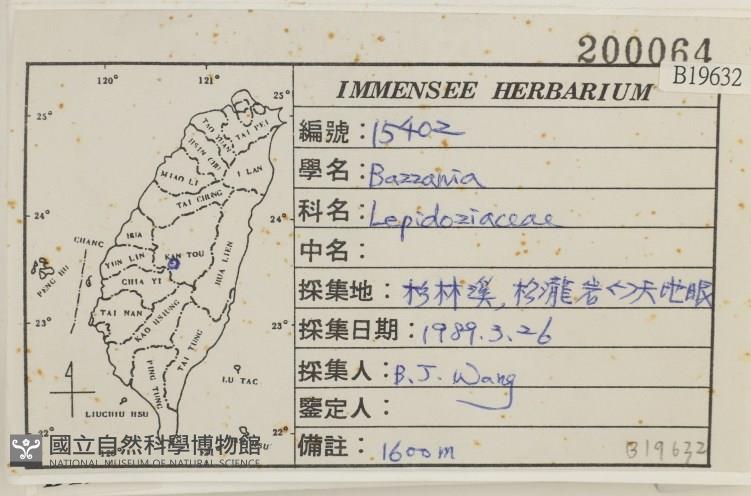 200064
B19632
IMMENSEE HERBARIUM
編號：15402
學名：Bazzania
科名：Lepidoziaceae
中名：
採集地：杉林溪，杉瀧岩<->天地眼
採集日期：1989.3.26
採集人：B.J. Wang
鑒定人：
備註：1600m
B19632
120° 121°
25° 25°
TAO YUAN
TAI PEI
HSIN CHU
I LAN
MIAO LI
TAI CHUNG
24° 24°
CHANG HUA
HUA LIEN
YUN LIN
NAN TOU
PENG HU
CHIA YI
TAI NAN
KAO HSIUNG
23° 23°
TAI TUNG
PING TUNG
LU TAO
LIUCHIU HSU
22° 22°
國立自然科學博物館
NATIONAL MUSEUM OF NATURAL SCIENCE
120° 121°